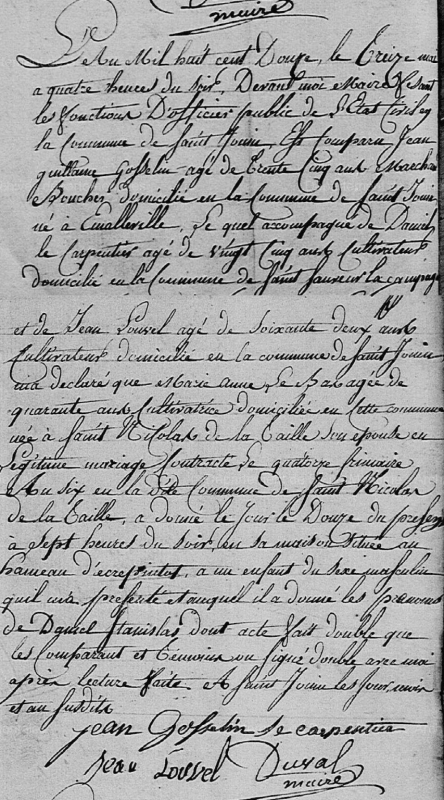 maire
L'An Mil huit cent Douze, le treize mai
a quatre heures du soir, Devant moi Maire faisant
les fonctions D'officier public de l'Etat Civil de
la Commune de Saint Jouin, Est Comparu Jean
guillaume Gosselin agé de trente Cinq ans Marchand
Boucher Domicilié en la Commune de Saint Jouin
né à Emalleville, Le quel acompagné de Daniel
le Carpentier agé de vingt Cinq ans Cultivateur
domicilié en la Commune de Saint Sauveur la campagne
et de Jean Louvel agé de soixante deux ans
Cultivateur domicilié en la commune de Saint Jouin
m'a declaré que Marie anne Le agée de
quarante ans Cultivatrice domiciliée en cette commune
née à Saint Nicolas de la Taille son epouse en
Légitime mariage Contracté Le quatorze frimaire
An six en la dite Commune de Saint Nicolas
de la Taille, a donné le Jour le Douze du present
à sept heures du soir, en sa maison située au
hameau a un enfant du sexe masculin
quil ma presenté et auquel il a donné les prenoms
de Daniel Stanislas dont acte fait double que
les Comparant et temoins on signé double avec moi
après lecture faite A Saint Jouin les Jour mois
et an susdits
jean Gosselin le carpentier
jean Louvel Duval
maire